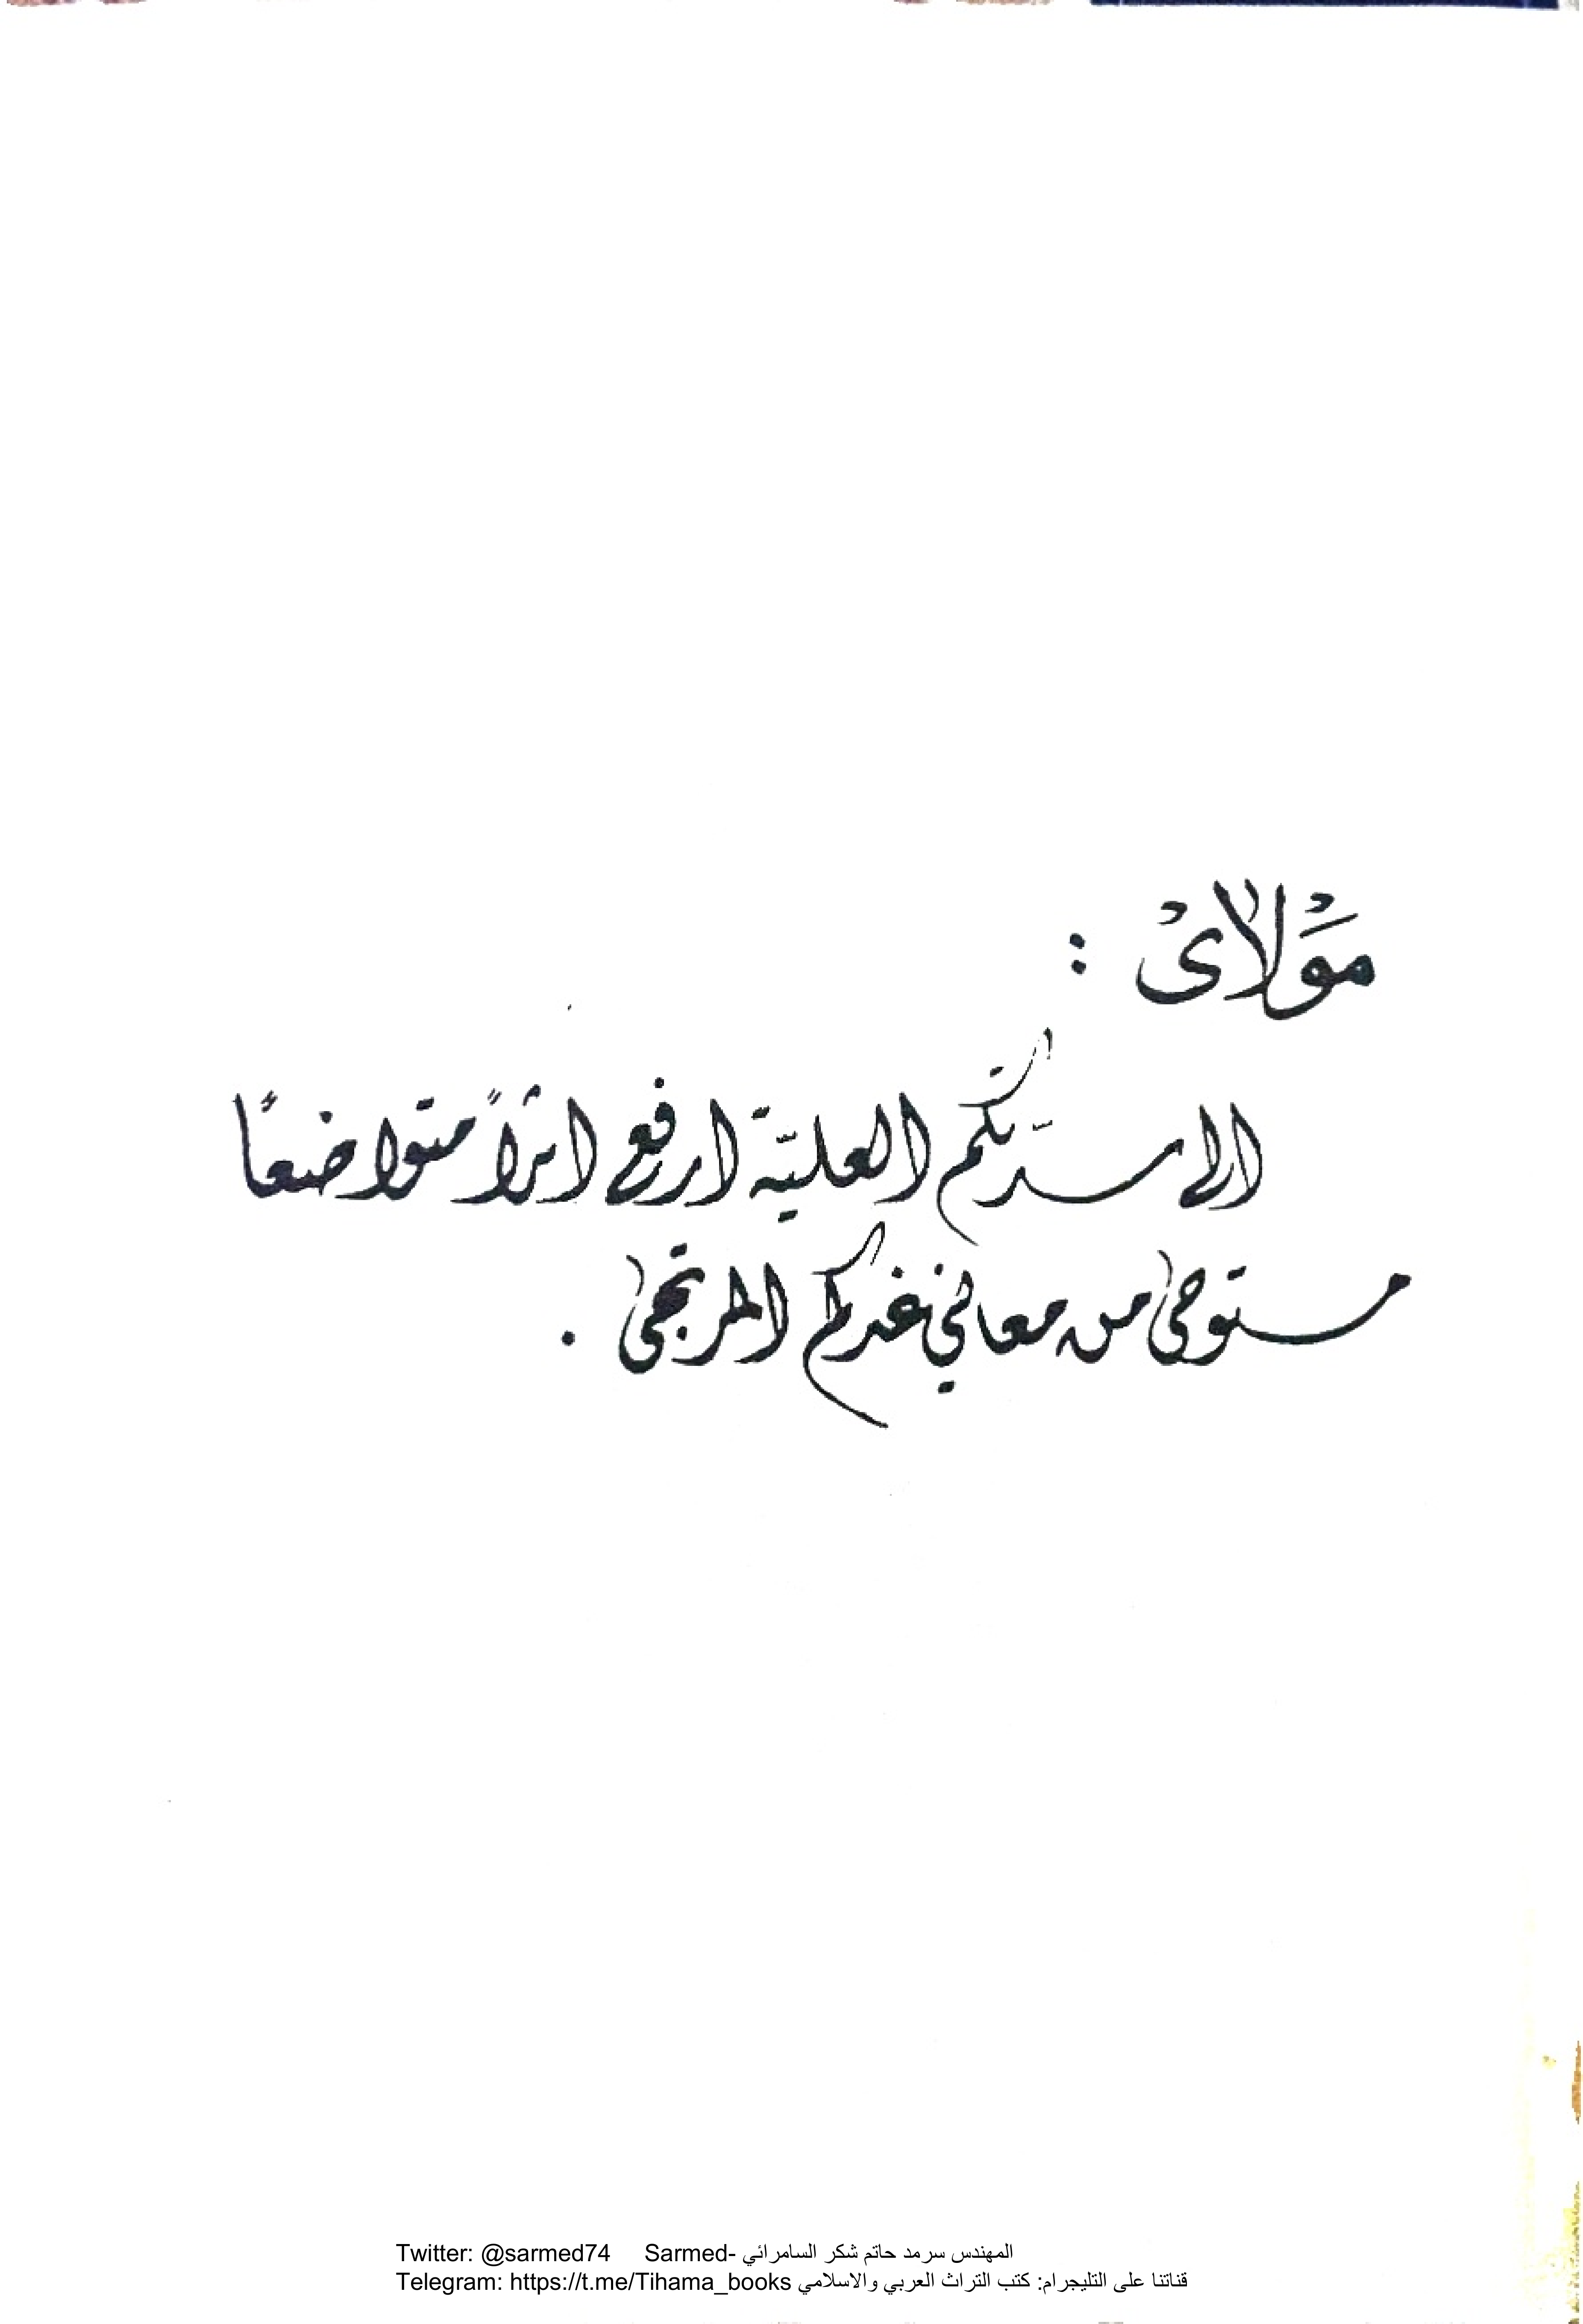 مَوْلاىْ :
الى سدّتكم العليّة ارفع اثراً متواضعاً
مستوحى من معاني غدكم المرتجى .
Twitter: @sarmed74 Sarmed- المهندس سرمد حاتم شكر السامرائي
Telegram: https://t.me/Tihama_books قناتنا على التليجرام: كتب التراث العربي والاسلامي